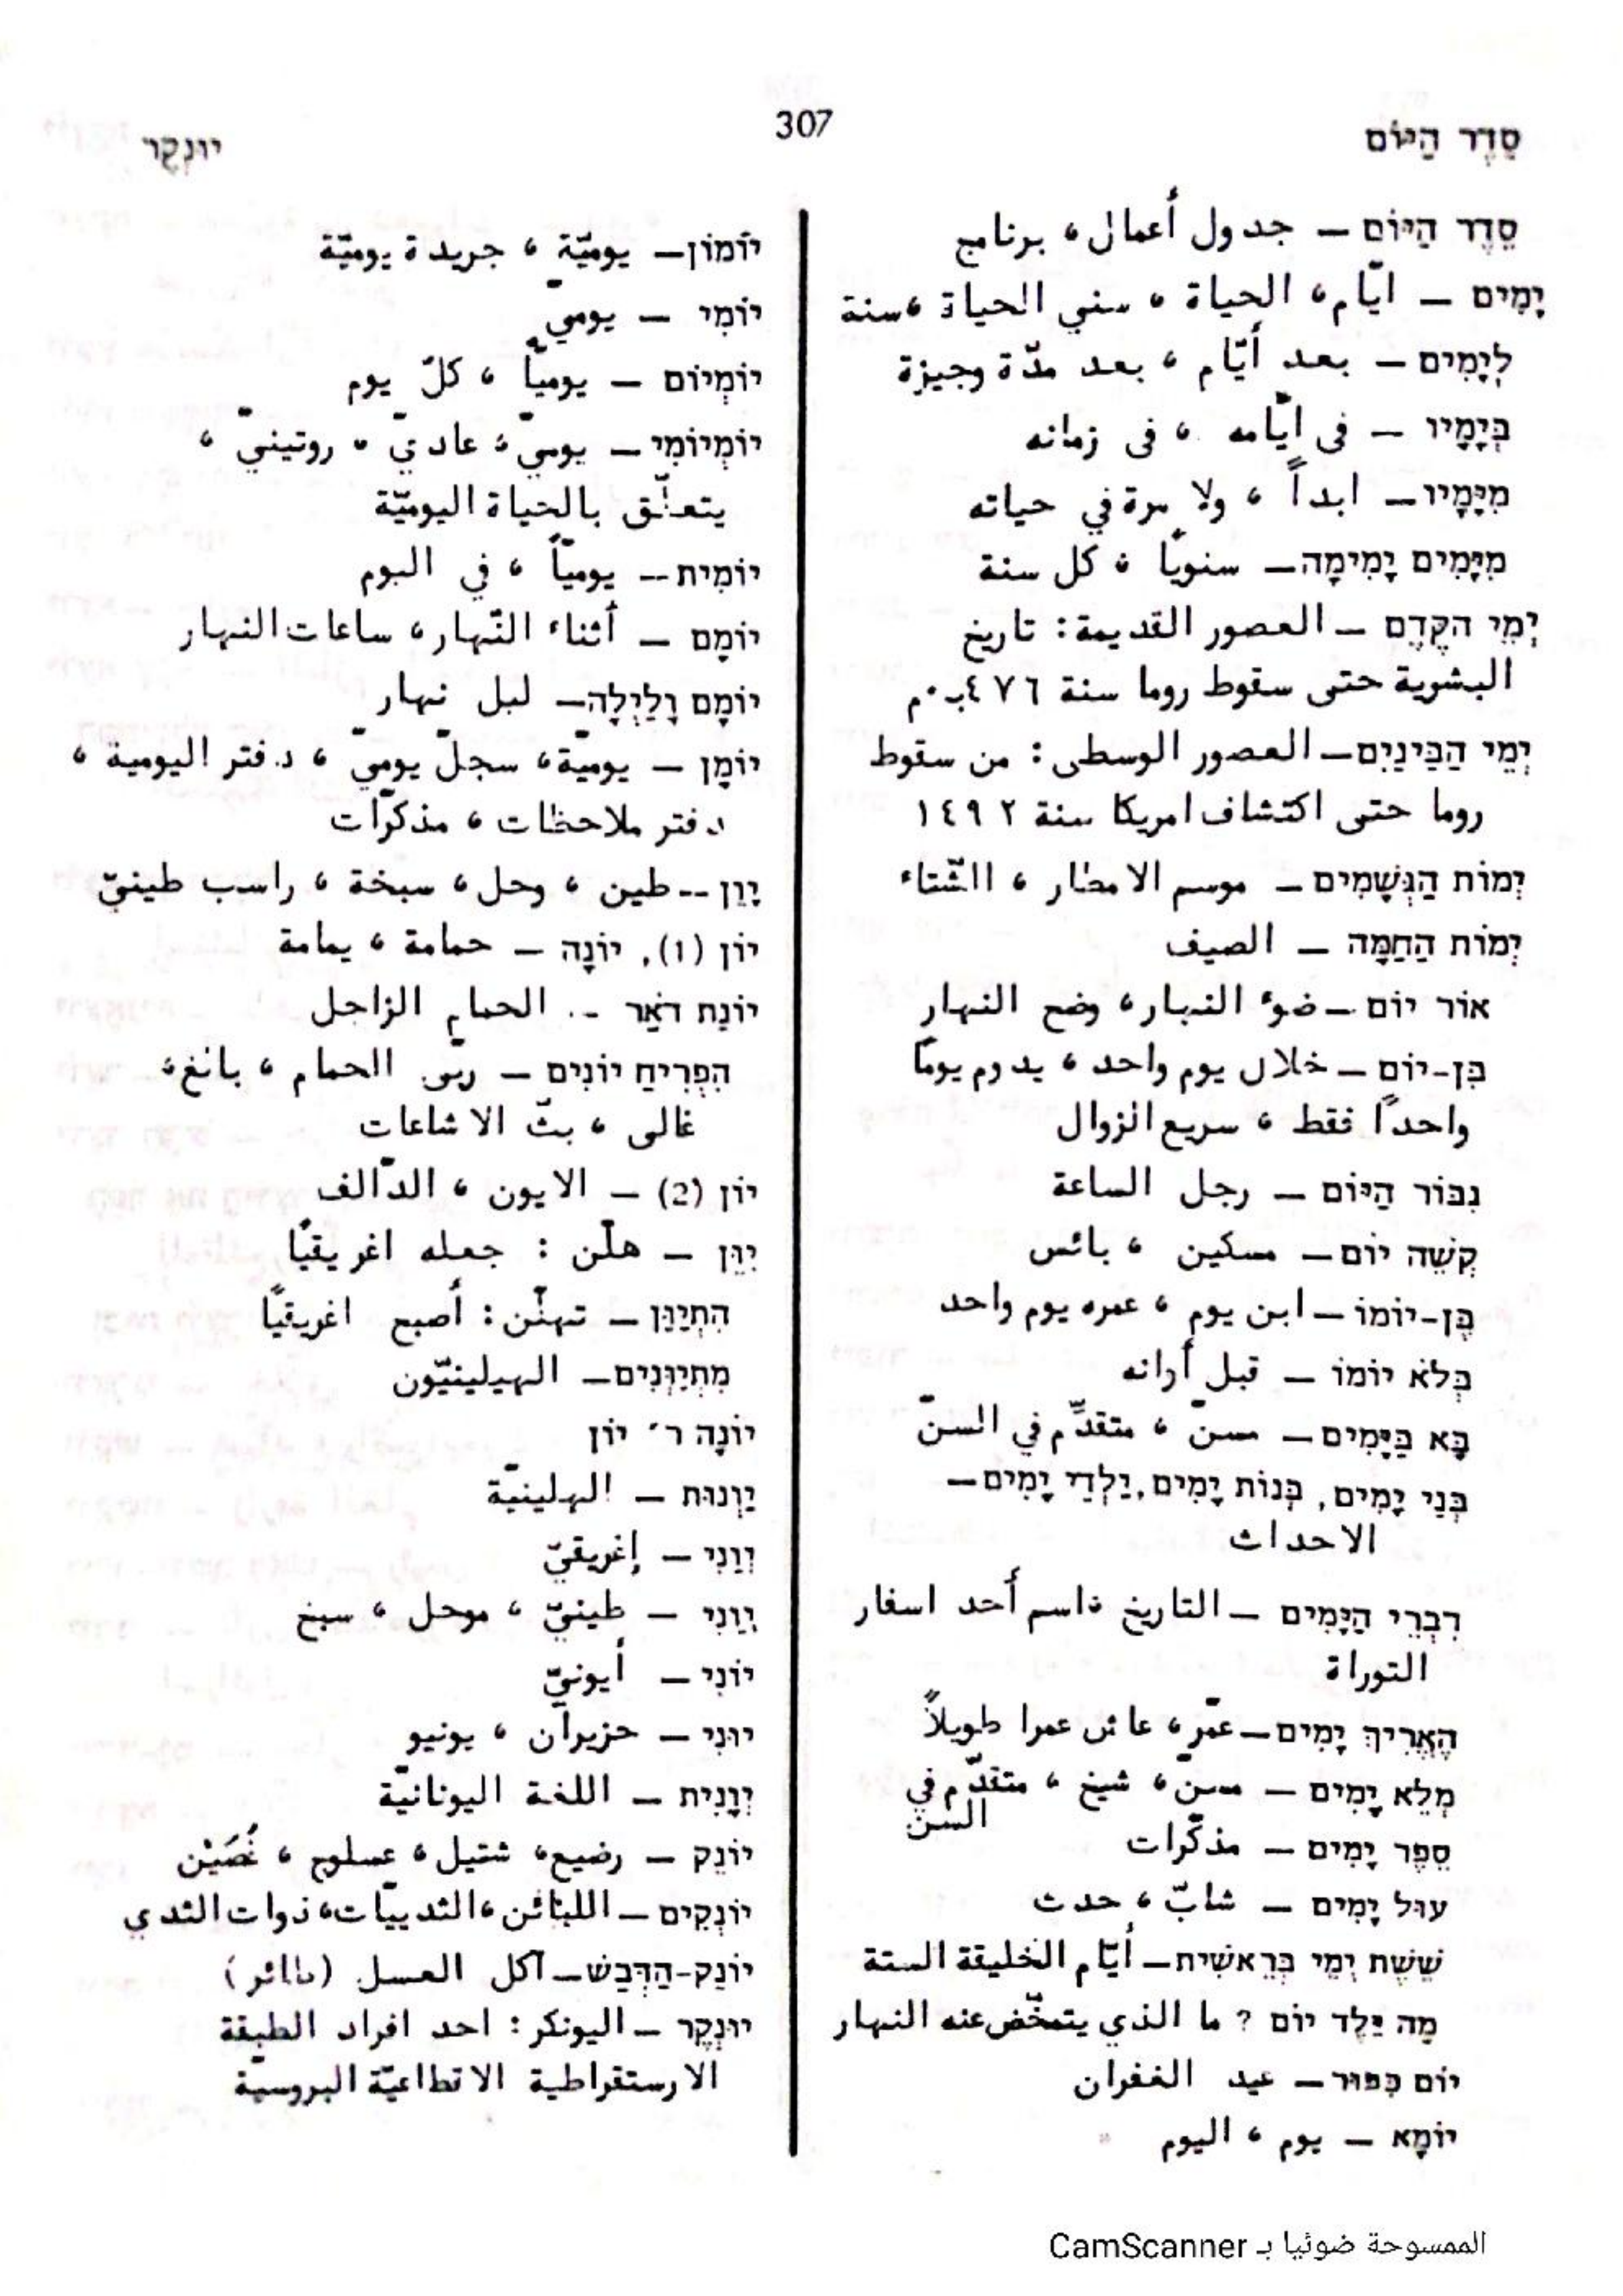 סֵדֶר הַיּוֹם
307
יוּנְקֶר
סֵדֶר הַיּוֹם – جدول أعمال، برنامج
יָמִים – ايّام، الحياة، سني الحياة، سنة
לְיָמִים – بعد أيّام، بعد مدّة وجيزة
בְּיָמָיו – في ايّامه، في زمانه
מִיָּמָיו – ابداً، ولا مرة في حياته
מִיָּמִים יָמִימָה – سنويًا، كل سنة
יְמֵי הקֶדֶם – العصور القديمة: تاريخ
البشرية حتى سقوط روما سنة ٤٧٦ب.م
יְמֵי הַבֵּינַיִם – العصور الوسطى: من سقوط
روما حتى اكتشاف امريكا سنة ١٤٩٢
יְמוֹת הַגְּשָׁמִים – موسم الامطار، الشّتاء
יְמוֹת הַחַמָּה – الصيف
אוֹר יוֹם – ضوء النهار، وضح النهار
בִּן-יוֹם – خلال يوم واحد، يدوم يومًا
واحدًا فقط، سريع الزوال
גִבּוֹר הַיּוֹם – رجل الساعة
קְשֵׁה יוֹם – مسكين، بائس
בֶּן-יוֹמוֹ – ابن يوم، عمره يوم واحد
בְּלֹא יוֹמוֹ – قبل أوانه
בָּא בַּיָּמִים – مسنّ، متقدّم في السنّ
בְּנֵי יָמִים, בְּנוֹת יָמִים, יַלְדֵי יָמִים –
الاحداث
דִבְרֵי הַיָּמִים – التاريخ، اسم أحد اسفار
التوراة
הֶאֱרִיךְ יָמִים – عمّر، عاش عمرا طويلاً
מְלֵא יָמִים – مسنّ، شيخ، متقدّم في
السّن
סֵפֶר יָמִים – مذكّرات
עוּל יָמִים – شابّ، حدث
שֵׁשֶׁת יְמֵי בְּרֵאשִׁית – أيّام الخليقة الستة
מָה יֵּלֶד יוֹם ? ما الذي يتمخّض عنه النهار
יוֹם כִּפּוּר – عيد الغفران
יוֹמָא – يوم، اليوم
יוֹמוֹן – يوميّة، جريدة يوميّة
יוֹמִי – يوميّ
יוֹמְיוֹם – يوميّاً، كلّ يوم
יוֹמְיוֹמִי – يوميّ، عاديّ، روتينيّ،
يتعلّق بالحياة اليوميّة
יוֹמִית – يوميّاً، في اليوم
יוֹמָם – أثناء النّهار، ساعات النهار
יוֹמָם וָלַיְלָה – ليل نهار
יוֹמָן – يوميّة، سجلّ يوميّ، دفتر اليومية،
دفتر ملاحظات، مذكّرات
יָוֵן – طين، وحل، سبخة، راسب طينيّ
יוֹן (1), יוֹנָה – حمامة، يمامة
יוֹנַת דֹאַר – الحمام الزاجل
הִפְרִיחַ יוֹנִים – ربّى الحمام، بالغ،
غالى، بثّ الاشاعات
יוֹן (2) – الايون، الدّالف
יִוֵּן – هلّن: جعله اغريقيًا
הִתְיַוֵּן – تهلّن: أصبح اغريقيًا
מִתְיַוְּנִים – الهيلينيّون
יוֹנָה ר׳ יוֹן
יַוְנוּת – الهلينيّة
יְוָנִי – إغريقيّ
יְוֵנִי – طينيّ، موحل، سبخ
יוֹנִי – أيونيّ
יוּנִי – حزيران، يونيو
יְוָנִית – اللغة اليونانيّة
יוֹנֵק – رضيع، شتيل، عسلوج، غُصَيْن
יוֹנְקִים – اللبائن، الثدييّات، ذوات الثدي
יוֹנֵק-הַדְּבַשׁ – آكل العسل (طائر)
יוּנְקֶר – اليونكر: احد افراد الطبقة
الارستقراطية الاقطاعيّة البروسيّة
الممسوحة ضوئيا بـ CamScanner